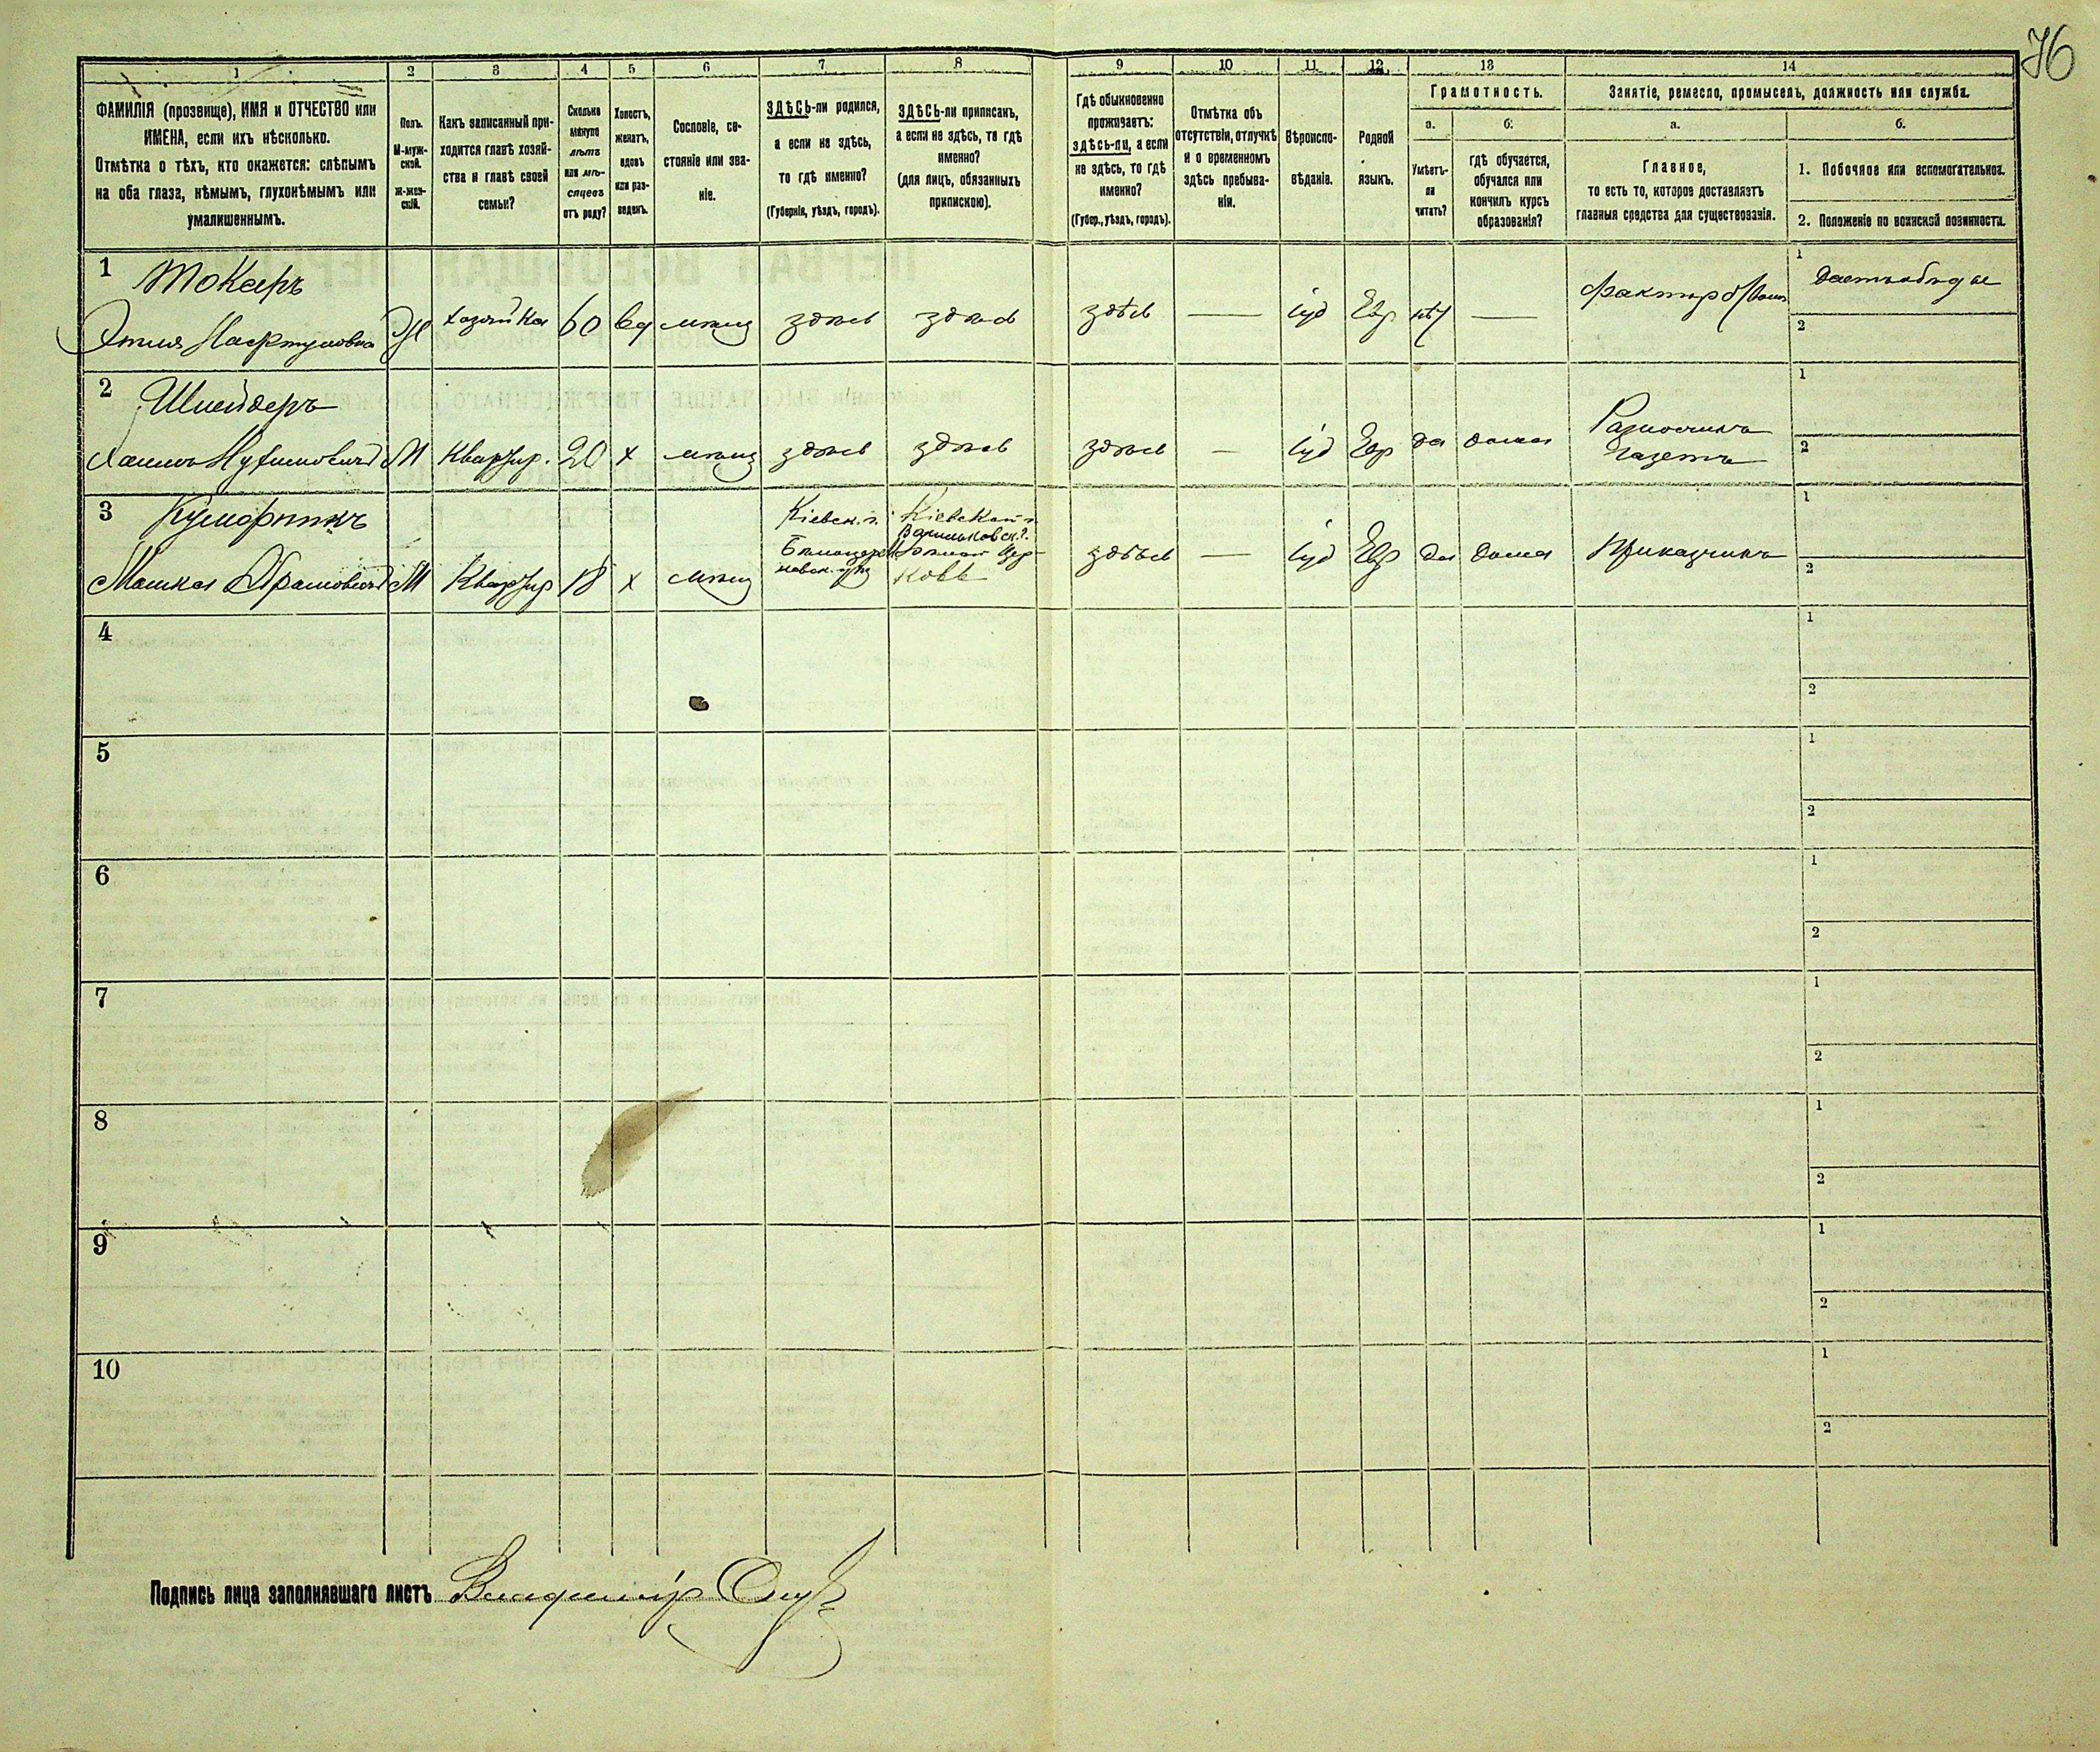 76
1 2 3 4 5 6 7 8 9 10 11 12 13 14
ФАМИЛІЯ (прозвище), ИМЯ и ОТЧЕСТВО или
ИМЕНА, если ихъ нѣсколько.
Отмѣтка о тѣхъ, кто окажется: слѣпымъ
на оба глаза, нѣмымъ, глухонѣмымъ или
умалишеннымъ.
Полъ.
М-муж-
ской.
Ж-жен-
скій.
Какъ записанный при-
ходится главѣ хозяй-
ства и главѣ своей
семьи?
Сколько
минуло
лѣтъ
или мѣ-
сяцевъ
отъ роду?
Холостъ,
женатъ,
вдовъ
или раз-
веденъ.
Сословіе, со-
стояніе или зва-
ніе.
ЗДѢСЬ-ли родился,
а если не здѣсь,
то гдѣ именно?
(Губернія, уѣздъ, городъ).
ЗДѢСЬ-ли приписанъ,
а если не здѣсь, то гдѣ
именно?
(для лицъ, обязанныхъ
припискою).
Гдѣ обыкновенно
проживаетъ:
здѣсь-ли, а если
не здѣсь, то гдѣ
именно?
(Губер., уѣздъ, городъ).
Отмѣтка объ
отсутствіи, отлучкѣ
и о временномъ
здѣсь пребыва-
ніи.
Вѣроиспо-
вѣданіе.
Родной
языкъ.
Грамотность.
а.
Умѣетъ-
ли
читать?
б.
гдѣ обучается,
обучался или
кончилъ курсъ
образованія?
Занятіе, ремесло, промыселъ, должность или служба.
а.
Главное,
то есть то, которое доставляетъ
главныя средства для существованія.
б.
1. Побочное или вспомогательное.
2. Положеніе по воинской повинности.
1 Токаръ
Этля Ж хозяйка 60 вд мѣщ здѣсь здѣсь здѣсь — іуд Евр нѣт —
1
2
2 Шнейдеръ
М Квартир. 20 х мѣщ здѣсь здѣсь здѣсь — іуд Евр да дома Разносчикъ
Газетъ
1
2
3
Мошка Абрамовичъ М Квартир 18 х мѣщ
Кіевск. г.
Кіевской г.
Васильковск. у.
Бѣлой Цер-
ковь
здѣсь — іуд Евр да дома Приказчикъ
1
2
4
1
2
5
1
2
6
1
2
7
1
2
8
1
2
9
1
2
10
1
2
Подпись лица заполнявшаго листъ Владиміръ